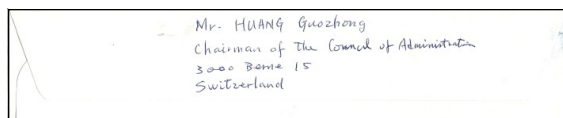 Mr. HUANG Guozhong
Chairman of The Council of Administration
3000 Berne 15
Switzerland